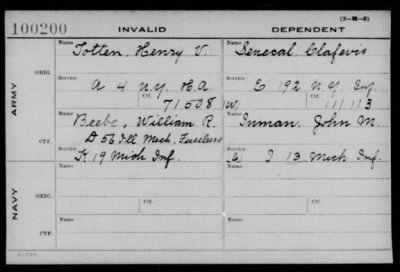 (3-H-5)
100200 INVALID DEPENDENT
Name Name
Totten, Henry V. Senecal, Clafevis
ORIG.
Service Service
A 4 N.Y. H.A. E 192 N.Y. Inf.
Ctf. Ctf.
71508 W 111113
ARMY
Name Name
Beebe, William R. Inman, John M.
D 56 Ill Mech. Fusileers
CTF.
Service Service
K 19 Mich Inf. I 13 Mich Inf.
NAVY
Name Name
ORIG.
Ctf. Ctf.
Name Name
CTF.